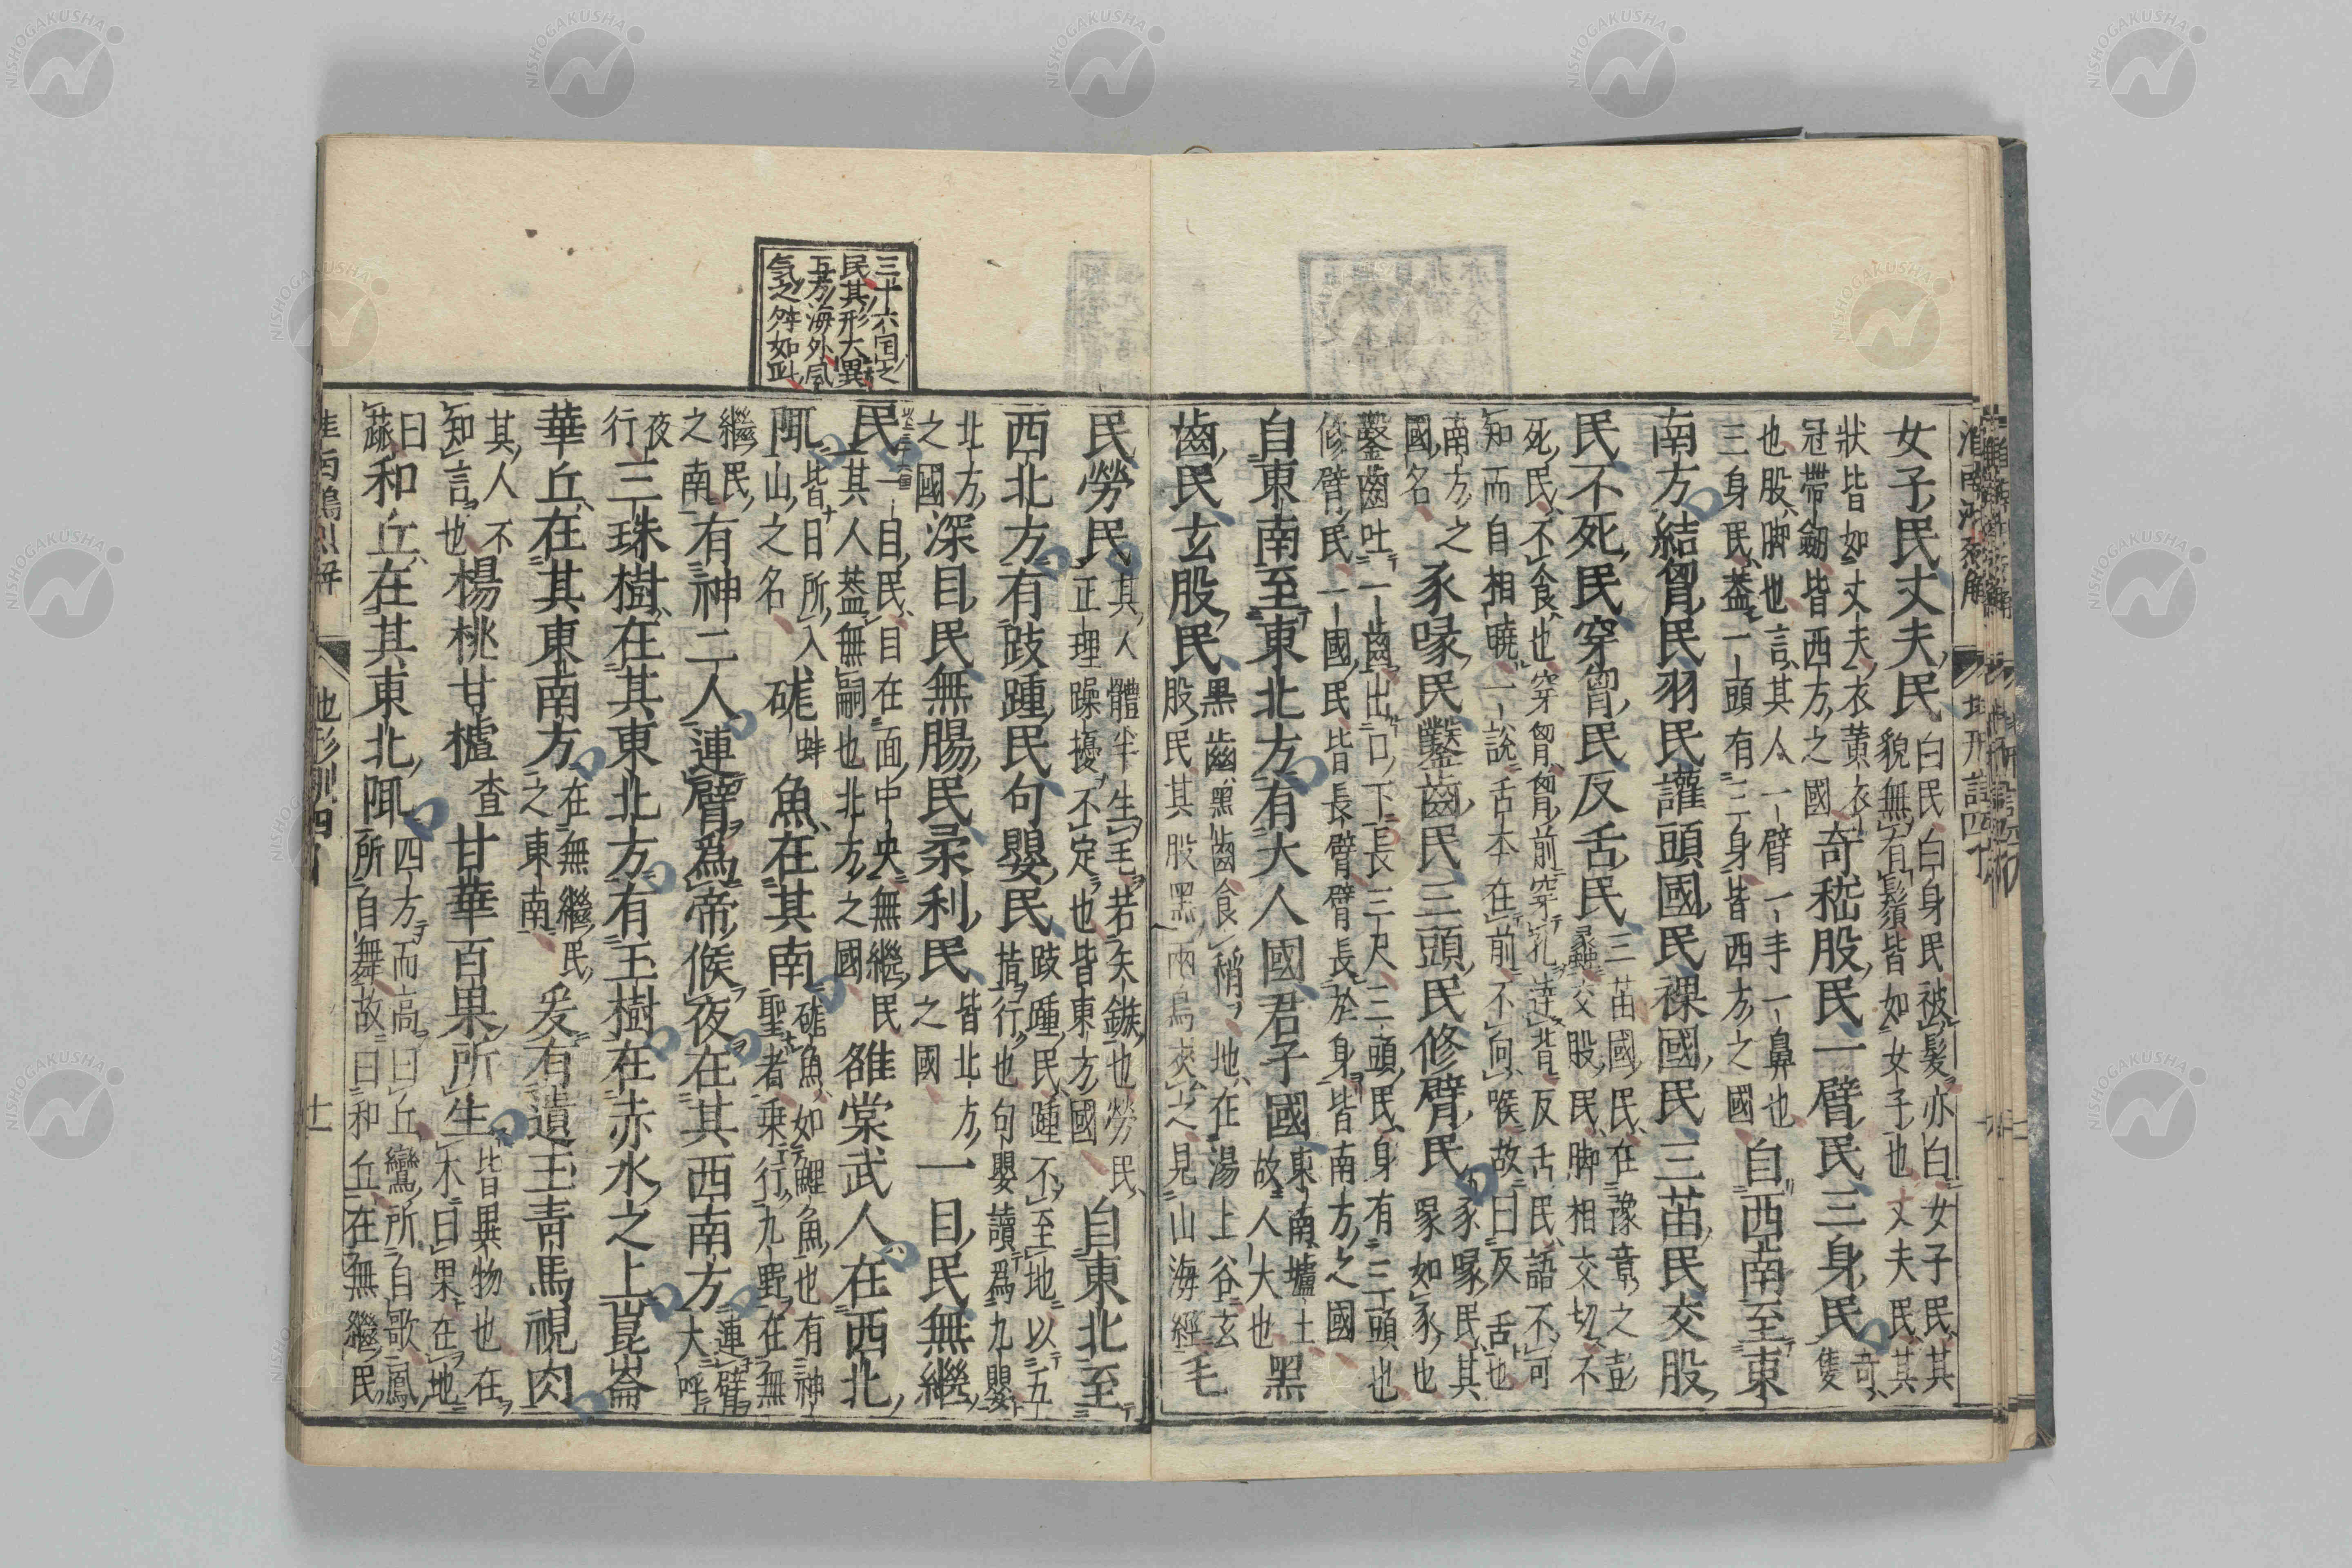 女子民丈夫民白民白身民被髮亦白女子民其
貌無有鬚皆如女子也丈夫民其
狀皆如丈夫衣黃衣
冠帶劒皆西方之國奇嵇股民一臂民三身民奇隻
也股脚也言其人一臂一手一鼻也
三身民葢一頭有三身皆西方之國自西南至東
南方結胷民羽民讙頭國民裸國民三苗民交股
民不死民穿胷民反舌民三苗國民在豫章之彭
蠡交股民脚相交切不
死民不食也穿胷胷前穿孔達背反舌民語不可
知而自相曉一說舌本在前不向喉故曰反舌也
南方之
國名豕喙民鑿齒民三頭民修臂民豕喙民其
喙如豕也
鑿齒吐一齒出口下長三尺三頭民身有三頭也
修臂民一國民皆長臂臂長於身皆南方之國
自東南至東北方有大人國君子國東南墟土
故人大也黑
齒民玄股民黑齒黑齒食稻地在湯上谷玄
股民其股黑兩鳥夾之見山海經毛
民勞民其人體半生毛若矢鏃也勞民
正理躁擾不定也皆東方國自東北至
西北方有跂踵民句嬰民跂踵民踵不至地以五
指行也句嬰讀爲九嬰
北方
之國深目民無腸民柔利民皆北方
之國一目民無繼
民一目民目在面中央無繼民
其人葢無嗣也北方之國雒棠武人在西北
陬皆日所入
山之名硥蚌魚在其南硥魚如鯉魚也有神
聖者乘行九野在無
繼民
之南有神二人連臂爲帝候夜在其西南方連臂
大呼
夜
行三珠樹在其東北方有玉樹在赤水之上崑崙
華丘在其東南方在無繼民
之東南爰有遺玉青馬視肉
其人不
知言也楊桃甘樝查甘華百果所生皆異物也在
木曰果在地
曰
蓏和丘在其東北陬四方而高曰丘鸞所自歌鳳
所自舞故曰和丘在無繼民
三十六国之
民其形大異
五方海外風
気之殊如此
地形訓四
十一